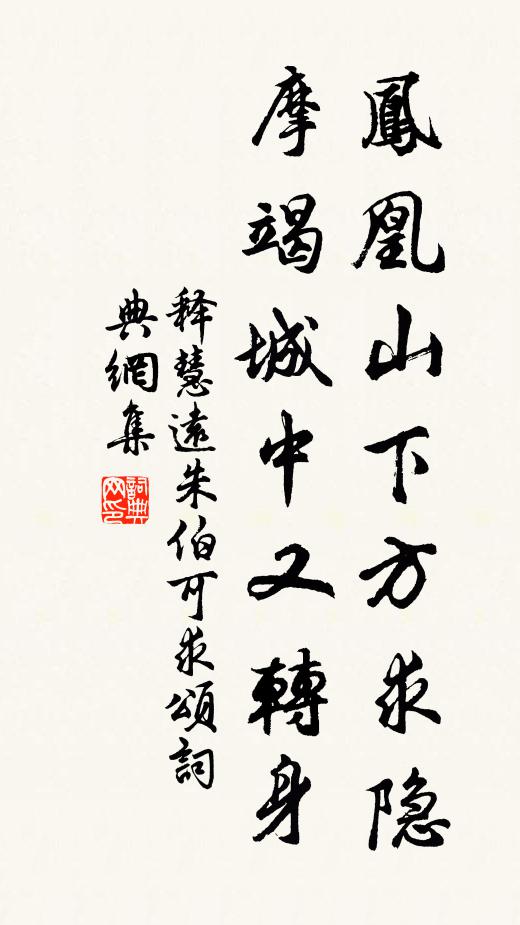 鳳凰山下方求隐
摩竭城中又轉身
释慧遠朱伯可求頌詞
典網集
詞典
网印